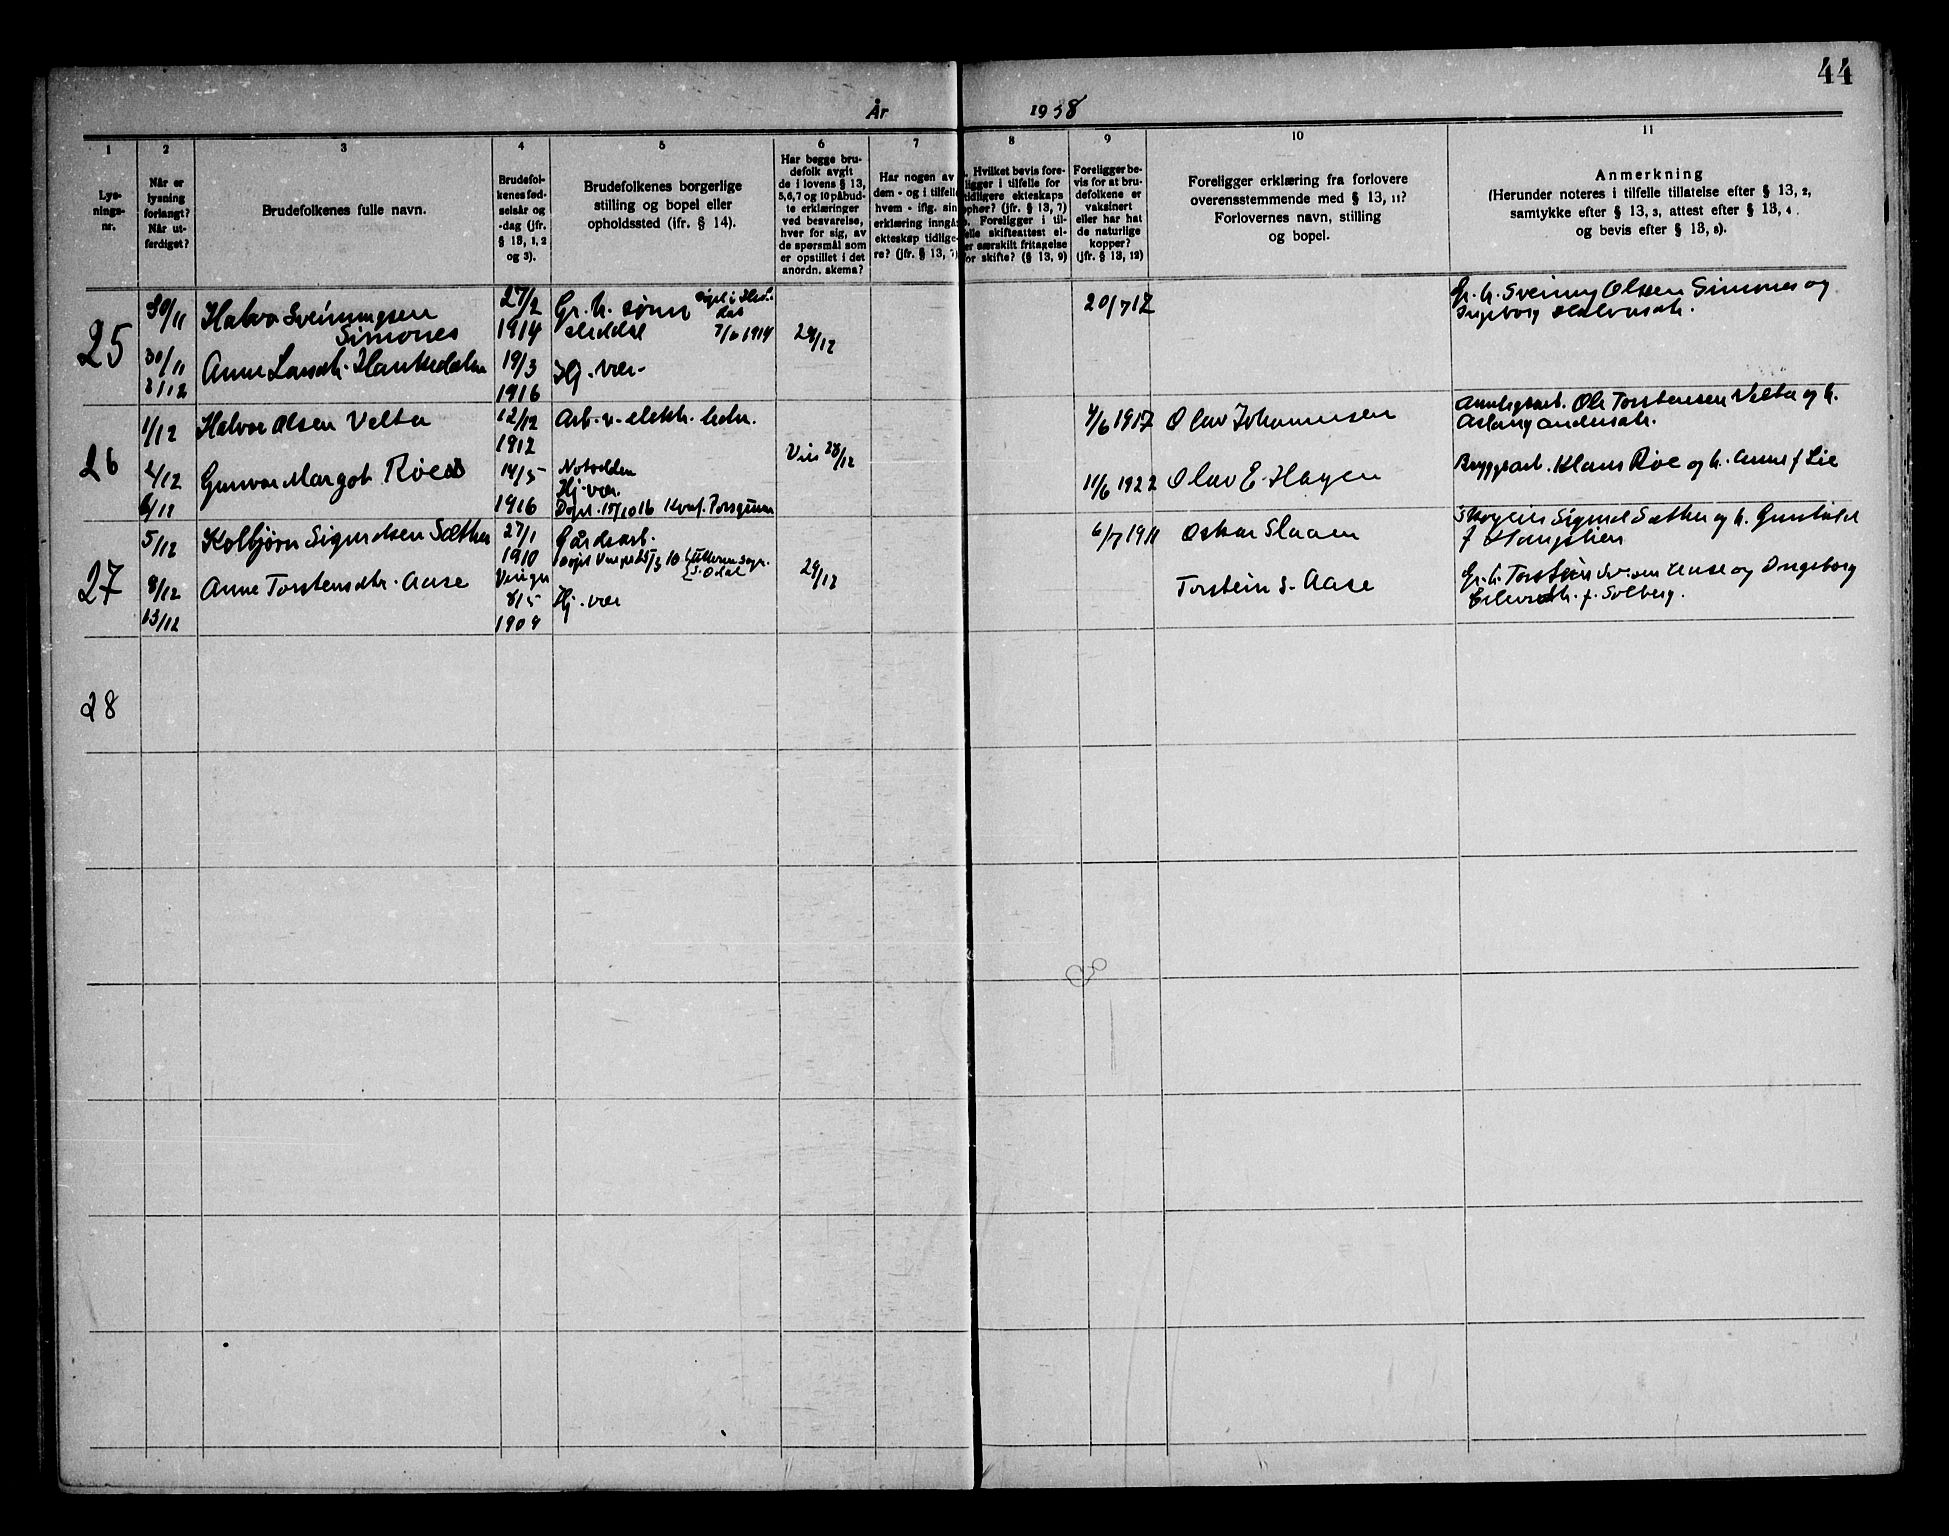 44
År 1938
1
2
3
4
5
6
7
8
9
10
11
Lys-
nings-
nr.
Når er
lysning
forlangt?
Når ut-
ferdiget?
Brudefolkenes fulle navn.
Brudefol-
kenes fød-
selsår og
-dag (jfr.
§ 13, 1, 2
og 3).
Brudefolkenes borgerlige
stilling og bopel eller
opholdssted (ifr. § 14).
Har begge bru-
defolk avgit
de i lovens § 13,
5,6,7 og 10 påbud-
te erklæringer
ved besvarelse,
hver for sig, av
de spørsmål som
er opstillet i det
anordn. skema?
Har nogen av
dem - og i tilfelle
hvem - iflg. sin
erklæring inngåt
ekteskap tidlige-
re? (jfr. § 13, 7)
Hvilket bevis fore-
ligger i tilfelle for
tidligere ekteskaps
ophør? (jfr. § 13, 7)
Foreligger i til-
felle skifteattest el-
er særskilt fritagelse
for skifte? (§ 13, 9)
Foreligger be-
vis for at bru-
defolkene er
vaksinert
eller har hat
de naturlige
kopper?
(jfr. § 13, 12)
Foreligger erklæring fra forlovere
overensstemmende med § 13, 11?
Forlovernes navn, stilling
og bopel.
Anmerkning
(Herunder noteres i tilfelle tillatelse efter § 13, 2,
samtykke efter § 13, 3, attest efter § 13, 4
og bevis efter § 13, 8).
25
30/11
Halvor Sveinungsen
Simones
27/2
1914
Gr. br. sønn
7/6 1914
29/12
20/7 12
Gr. br. Sveinung Olsen Simones og
Ingeborg Halvorsdtr.
30/11
2/12
Anne Larsdtr. Haukedalen
19/3
1916
Hj. vær.
26
1/12
Halvor Olsen Velta
12/12
1912
Arb. v. elektr. ledn.
Viet 28/12
4/6 1917
Olav Johannesen
Anleggsarb. Ole Torstensen Velta og h.
Aslaug Andersdtr.
2/12
6/12
Gunvor Margot Røed
14/5
1916
Notodden
Hj. vær.
Døpt. 15/10 16 Porsgrunn
11/6 1922
Olav E. Hagen
Bryggearb. Klaus Røe og h. Anne f. Lie
27
5/12
Kolbjørn Sigurdsen Sæther
27/1
1910
Gårdsarb.
29/12
6/7 1911
Oskar Slaaen
Sigurd Sæther og h. Gunhild
f. Haugslien
9/12
13/12
Anne Torstensdtr. Aase
8/5
1909
Hj. vær
Torstein S. Aase
Gr. br. Torstein Aase og Ingeborg
f. Solberg.
28